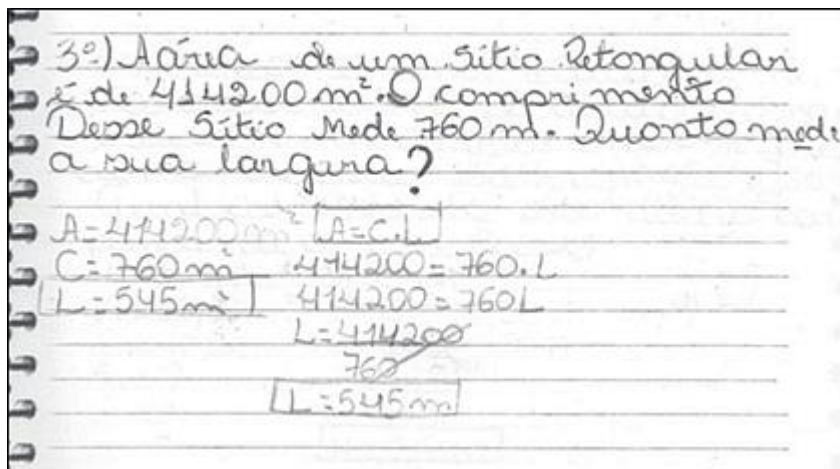 3º) A área de um sítio Retongular
é de 414200 m². O comprimento
Desse Sítio Mede 760 m. Quonto medi
a sua largura?
A = 414200 m² A = C.L
C = 760 m² 414200 = 760.L
L = 545 m² 414200 = 760L
L = 414200
760
L = 545 m